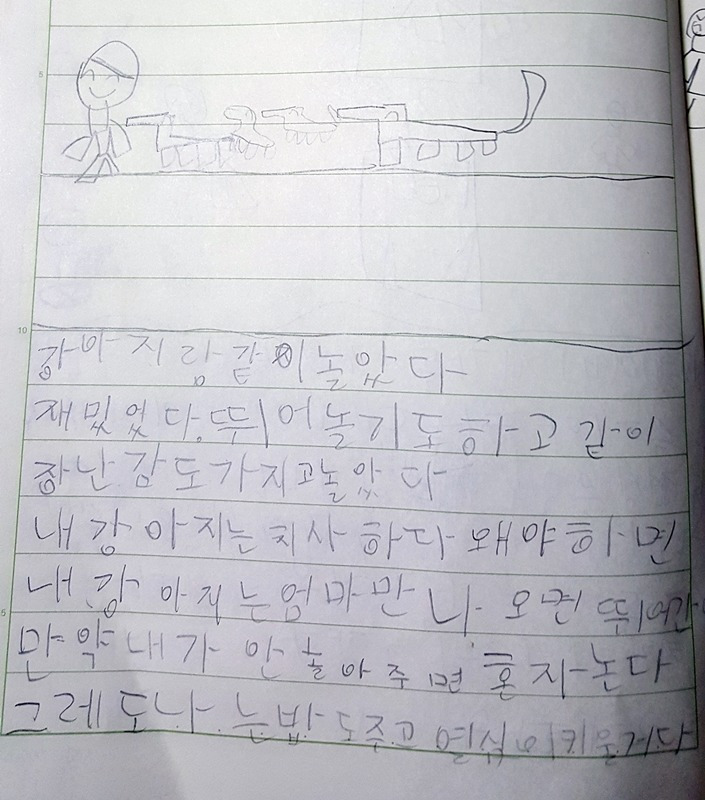 강아지랑 같이 놀았다
재밌었다. 뛰어 놀기도 하고 같이
장난감도 가지고 놀았다
내 강아지는 치사하다 왜야하면
내 강아지는 엄마만 나오면 뛰어간
만약 내가 안 놀아주면 혼자논다
그레도 나는 밥도주고 열심이 키울거다
5
10
5